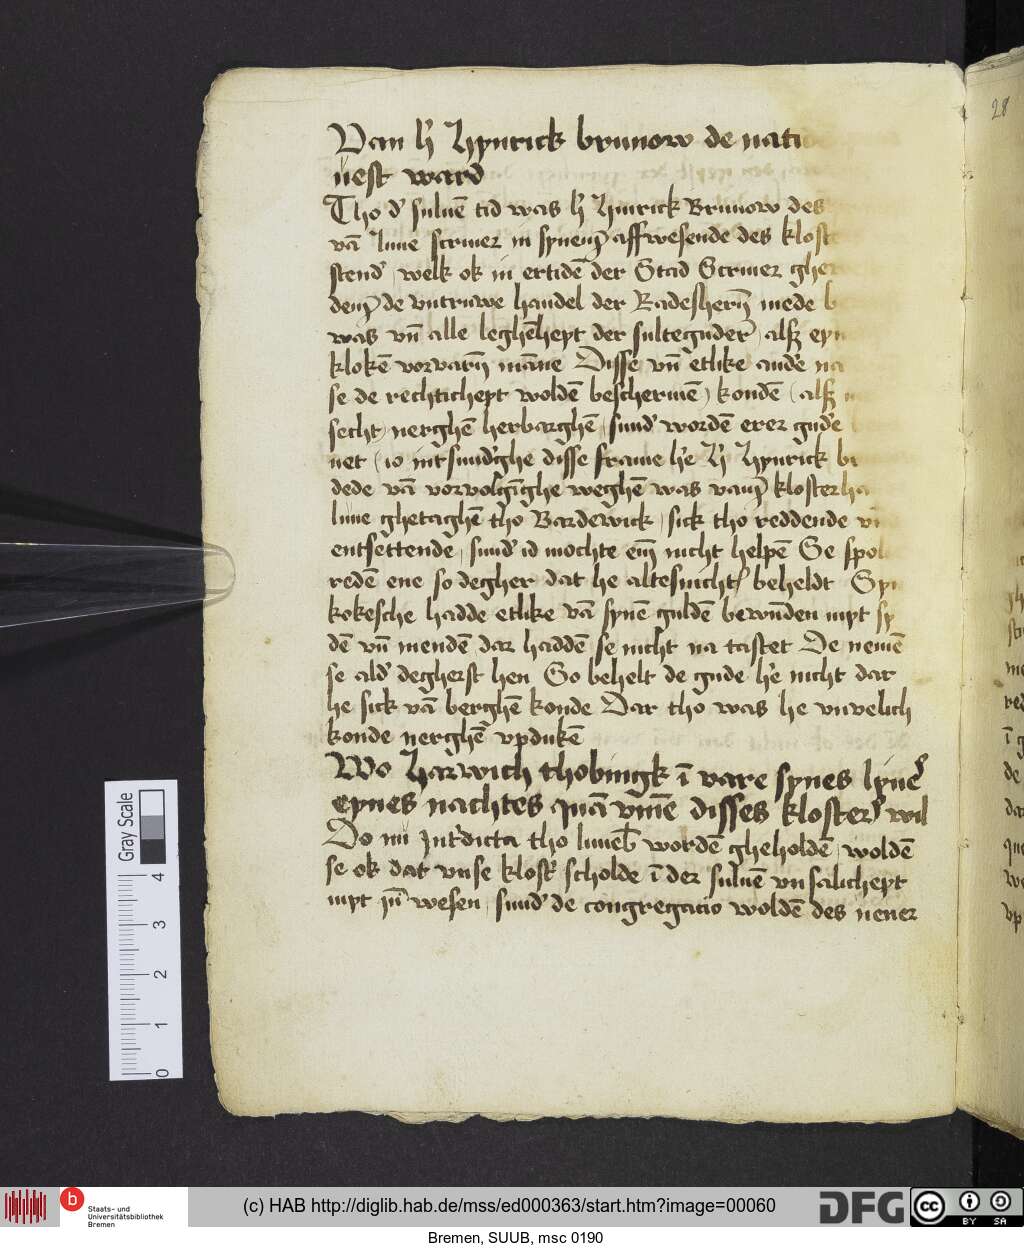 Van h' Hynrick brunow de nati
nest ward
Tho d' suluē tid was h' Hinrick Brunow des
vā lune scriuer in synem affwesende des klost
stend' welk ok in ertidē der Stad Scriuer gher
dem de vntruwe handel der Radeshern mede b
was vn̄ alle leghēheyt der sulteguder alsz eyn
klokē vorvarn māne Disse vn̄ etlike and'e na
se de rechticheyt woldē beschermē kondē alsz
secht nerghē herbarghē sund' wordē erer gud'e
net io int sund'ghe disse frame h'e h' Hynrick br
dede vā vorvolgīghe weghē was vam klosterha
lune ghetaghē tho Bardewick sick tho reddende vn
entsettende sund' id mochte em nicht helpē Se spol
redē ene so degher dat he altesnicht beheldt Syn
kokesche hadde etlike vā synē guldē bewūden myt sy
dē vn̄ mendē dar haddē se nicht na tastet De nemē
se ald' degherst hen So behelt de gude h'e nicht dar
he sick vā berghē konde Dar tho was he vnvelich
konde nerghē vpdukē
Wo Harwich thobingk ī vare synes lyue'
eynes nachtes quā vmē disses kloster' wil
Do nu Int'dicta tho luneb' wordē gheholdē woldē
se ok dat vnse klost' scholde ī der suluē vnsalicheyt
myt in wesen sund' de congregacio woldē des nener
28
Gray Scale
0 1 2 3 4
Staats- und
Universitätsbibliothek
Bremen
(c) HAB http://diglib.hab.de/mss/ed000363/start.htm?image=00060
DFG
cc BY SA
Bremen, SUUB, msc 0190